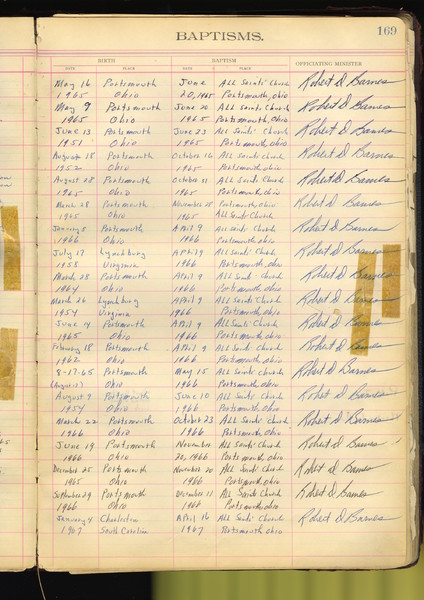 169
BAPTISMS.
BIRTH BAPTISM OFFICIATING MINISTER
DATE PLACE DATE PLACE
May 16 Portsmouth June All Saints' Church Robert D. Barnes
1965 Ohio 20, 1965 Portsmouth, Ohio
May 9 Portsmouth June 20 All Saints Church Robert D. Barnes
1965 Ohio 1965 Portsmouth, Ohio
June 13 Portsmouth June 23 All Saints' Church Robert D. Barnes
1951 Ohio 1965 Portsmouth, Ohio
August 18 Portsmouth October 16 All Saints' Church Robert D. Barnes
1952 Ohio 1965 Portsmouth, Ohio
August 28 Portsmouth October 31 All Saints' Church Robert D. Barnes
1965 Ohio 1965 Portsmouth, Ohio
March 28 Portsmouth November 28 Portsmouth, Ohio Robert D. Barnes
1965 Ohio 1965 All Saints' Church
January 5 Portsmouth April 9 All Saints' Church Robert D. Barnes
1966 Ohio 1966 Portsmouth, Ohio
July 17 Lynchburg April 9 All Saints' Church Robert D. Barnes
1958 Virginia 1966 Portsmouth, Ohio
March 28 Portsmouth April 9 All Saints' Church Robert D. Barnes
1964 Ohio 1966 Portsmouth, Ohio
March 26 Lynchburg April 9 All Saints' Church Robert D. Barnes
1954 Virginia 1966 Portsmouth, Ohio
June 14 Portsmouth April 9 All Saints' Church Robert D. Barnes
1965 Ohio 1966 Portsmouth, Ohio
February 18 Portsmouth April 9 All Saints' Church Robert D. Barnes
1962 Ohio 1966 Portsmouth, Ohio
8-17-65 Portsmouth May 15 All Saints' Church Robert D. Barnes
(August 17) Ohio 1966 Portsmouth, Ohio
August 7 Portsmouth June 10 All Saints' Church Robert D. Barnes
1954 Ohio 1966 Portsmouth, Ohio
March 22 Portsmouth October 23 All Saints' Church Robert D. Barnes
1966 Ohio 1966 Portsmouth, Ohio
June 19 Portsmouth November All Saints' Church Robert D. Barnes
1966 Ohio 20, 1966 Portsmouth, Ohio
December 25 Portsmouth November 20 All Saints' Church Robert D. Barnes
1965 Ohio 1966 Portsmouth, Ohio
September 29 Portsmouth December 11 All Saints Church Robert D. Barnes
1966 Ohio 1966 Portsmouth, Ohio
January 4 Charleston April 16 All Saints' Church Robert D. Barnes
1967 South Carolina 1967 Portsmouth, Ohio